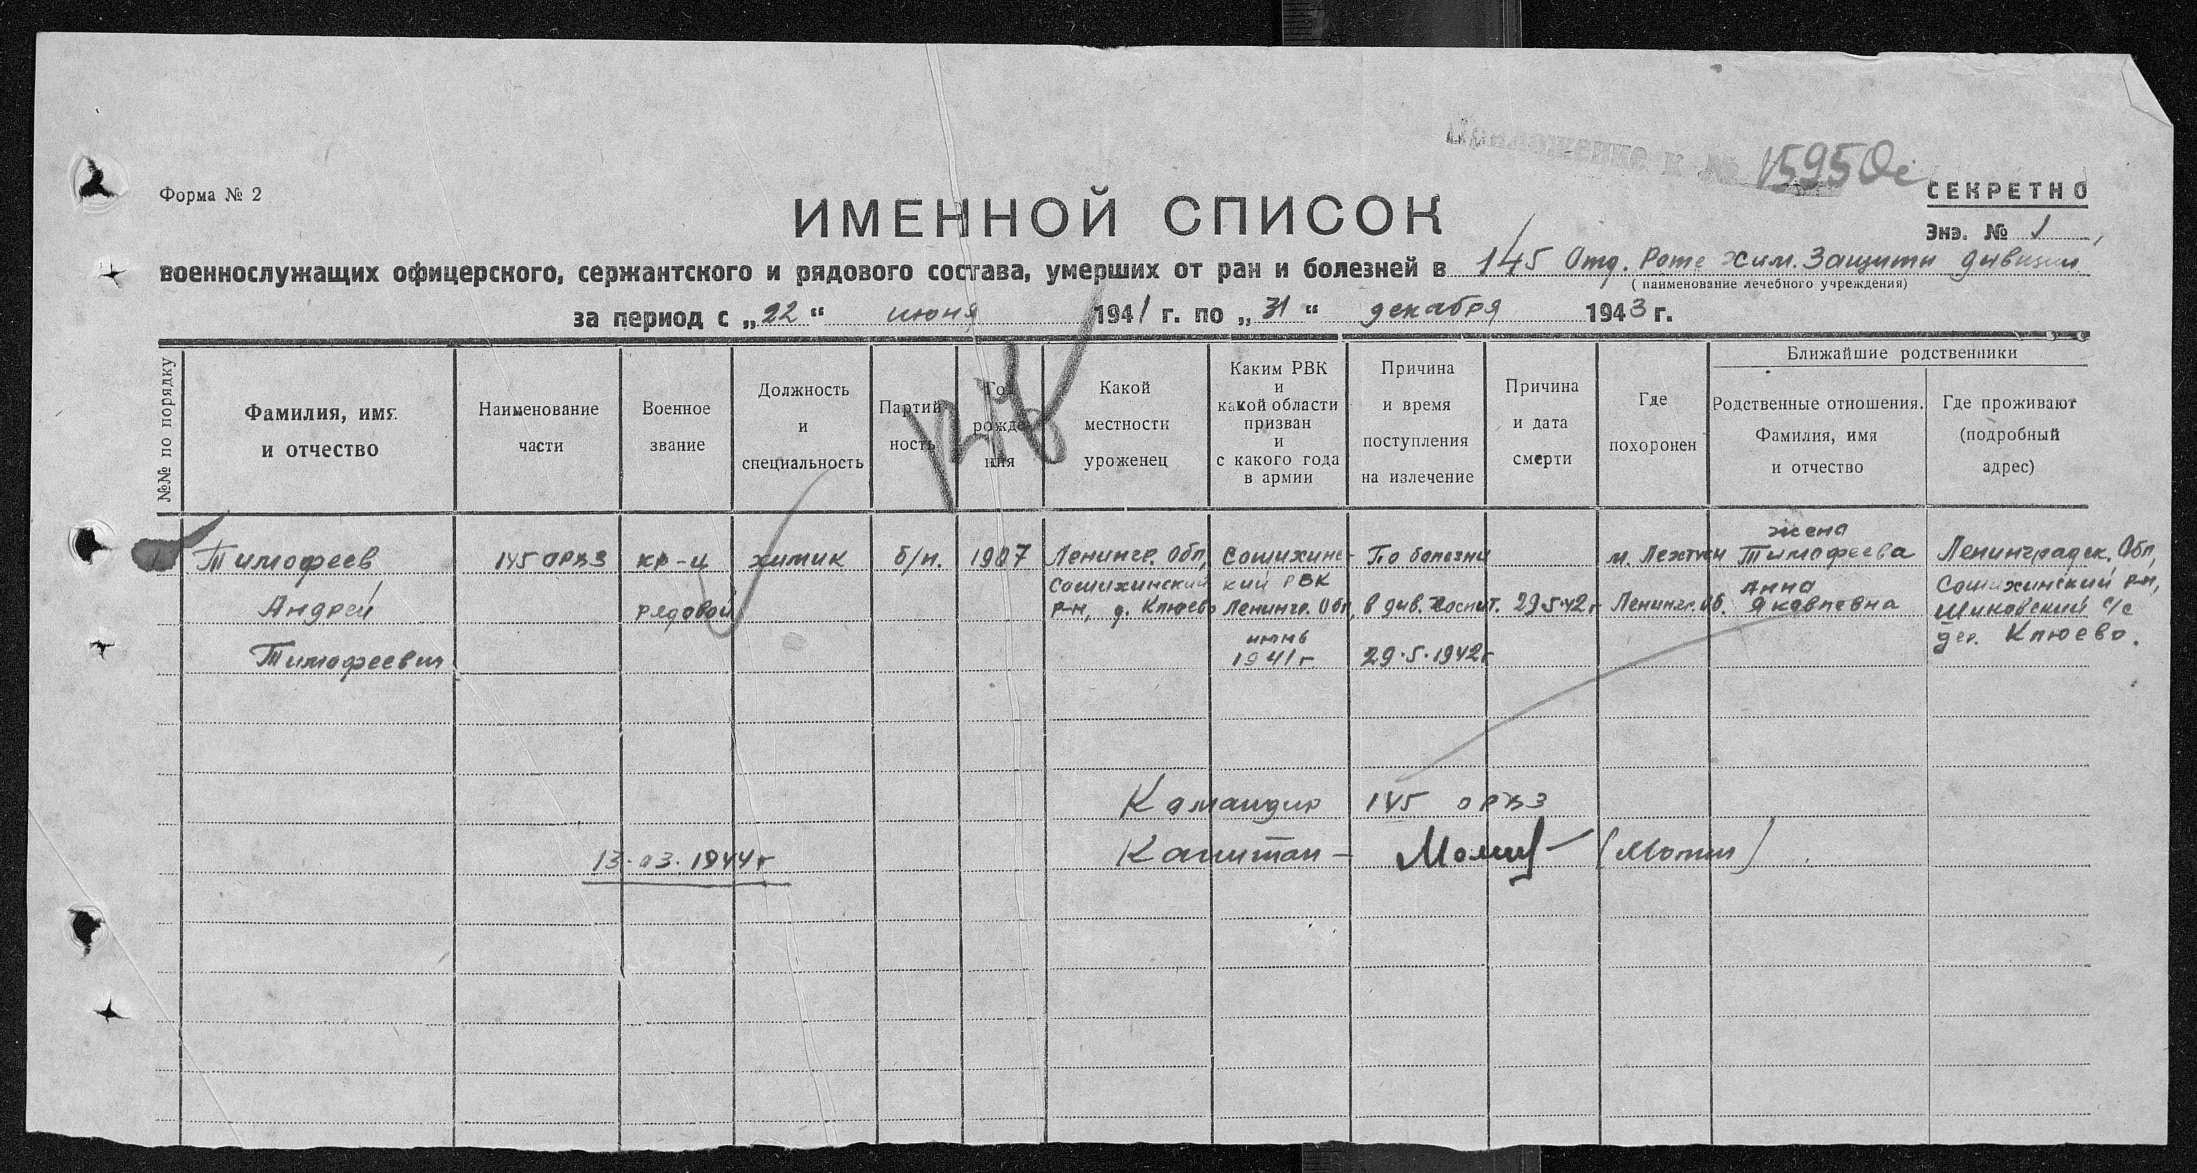 Приложение к № 15950с
Форма № 2
СЕКРЕТНО
ИМЕННОЙ СПИСОК
Экз. № 1
военнослужащих офицерского, сержантского и рядового состава, умерших от ран и болезней в 145 Отд. Роте Хим. Защиты дивизии
(наименование лечебного учреждения)
за период с „22“ июня 1941 г. по „31“ декабря 1943 г.
№№ по порядку
Фамилия, имя и отчество
Наименование части
Военное звание
Должность и специальность
Партийность
Год рождения
Какой местности уроженец
Каким РВК и какой области призван и с какого года в армии
Причина и время поступления на излечение
Причина и дата смерти
Где похоронен
Ближайшие родственники
Родственные отношения. Фамилия, имя и отчество
Где проживают (подробный адрес)
Тимофеев
Андрей
Тимофеевич
145 ОРХЗ
кр-ц
рядовой
химик
б/п.
1907
Ленингр. Обл,
Сошихинский
р-н, д. Клюево
Сошихинс-
кий РВК
Ленингр. Обл,
июнь
1941 г
По болезни
в див. госпит.
29.5.1942г
29.5.42г
Ленингр. об.
жена
Тимофеева
Анна
Яковлевна
Ленинградск. Обл,
Сошихинский р-н,
с/с
дер. Клюево.
Командир 145 ОРХЗ
Капитан -
13.03.1944г